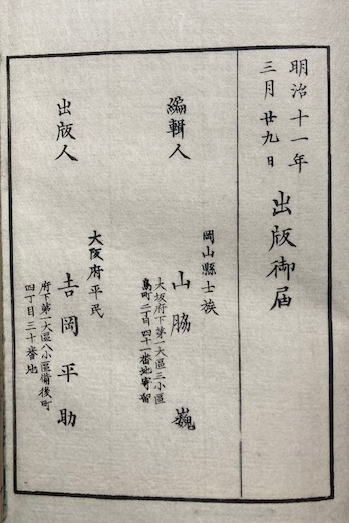 明治十一年
三月廿九日
出版御届
編輯人
岡山縣士族
山脇巍
大坂府下第一大區三小區
島町二丁目四十一番地寄留
出版人
大阪府平民
吉岡平助
府下第一大區八小區備後町
四丁目三十番地